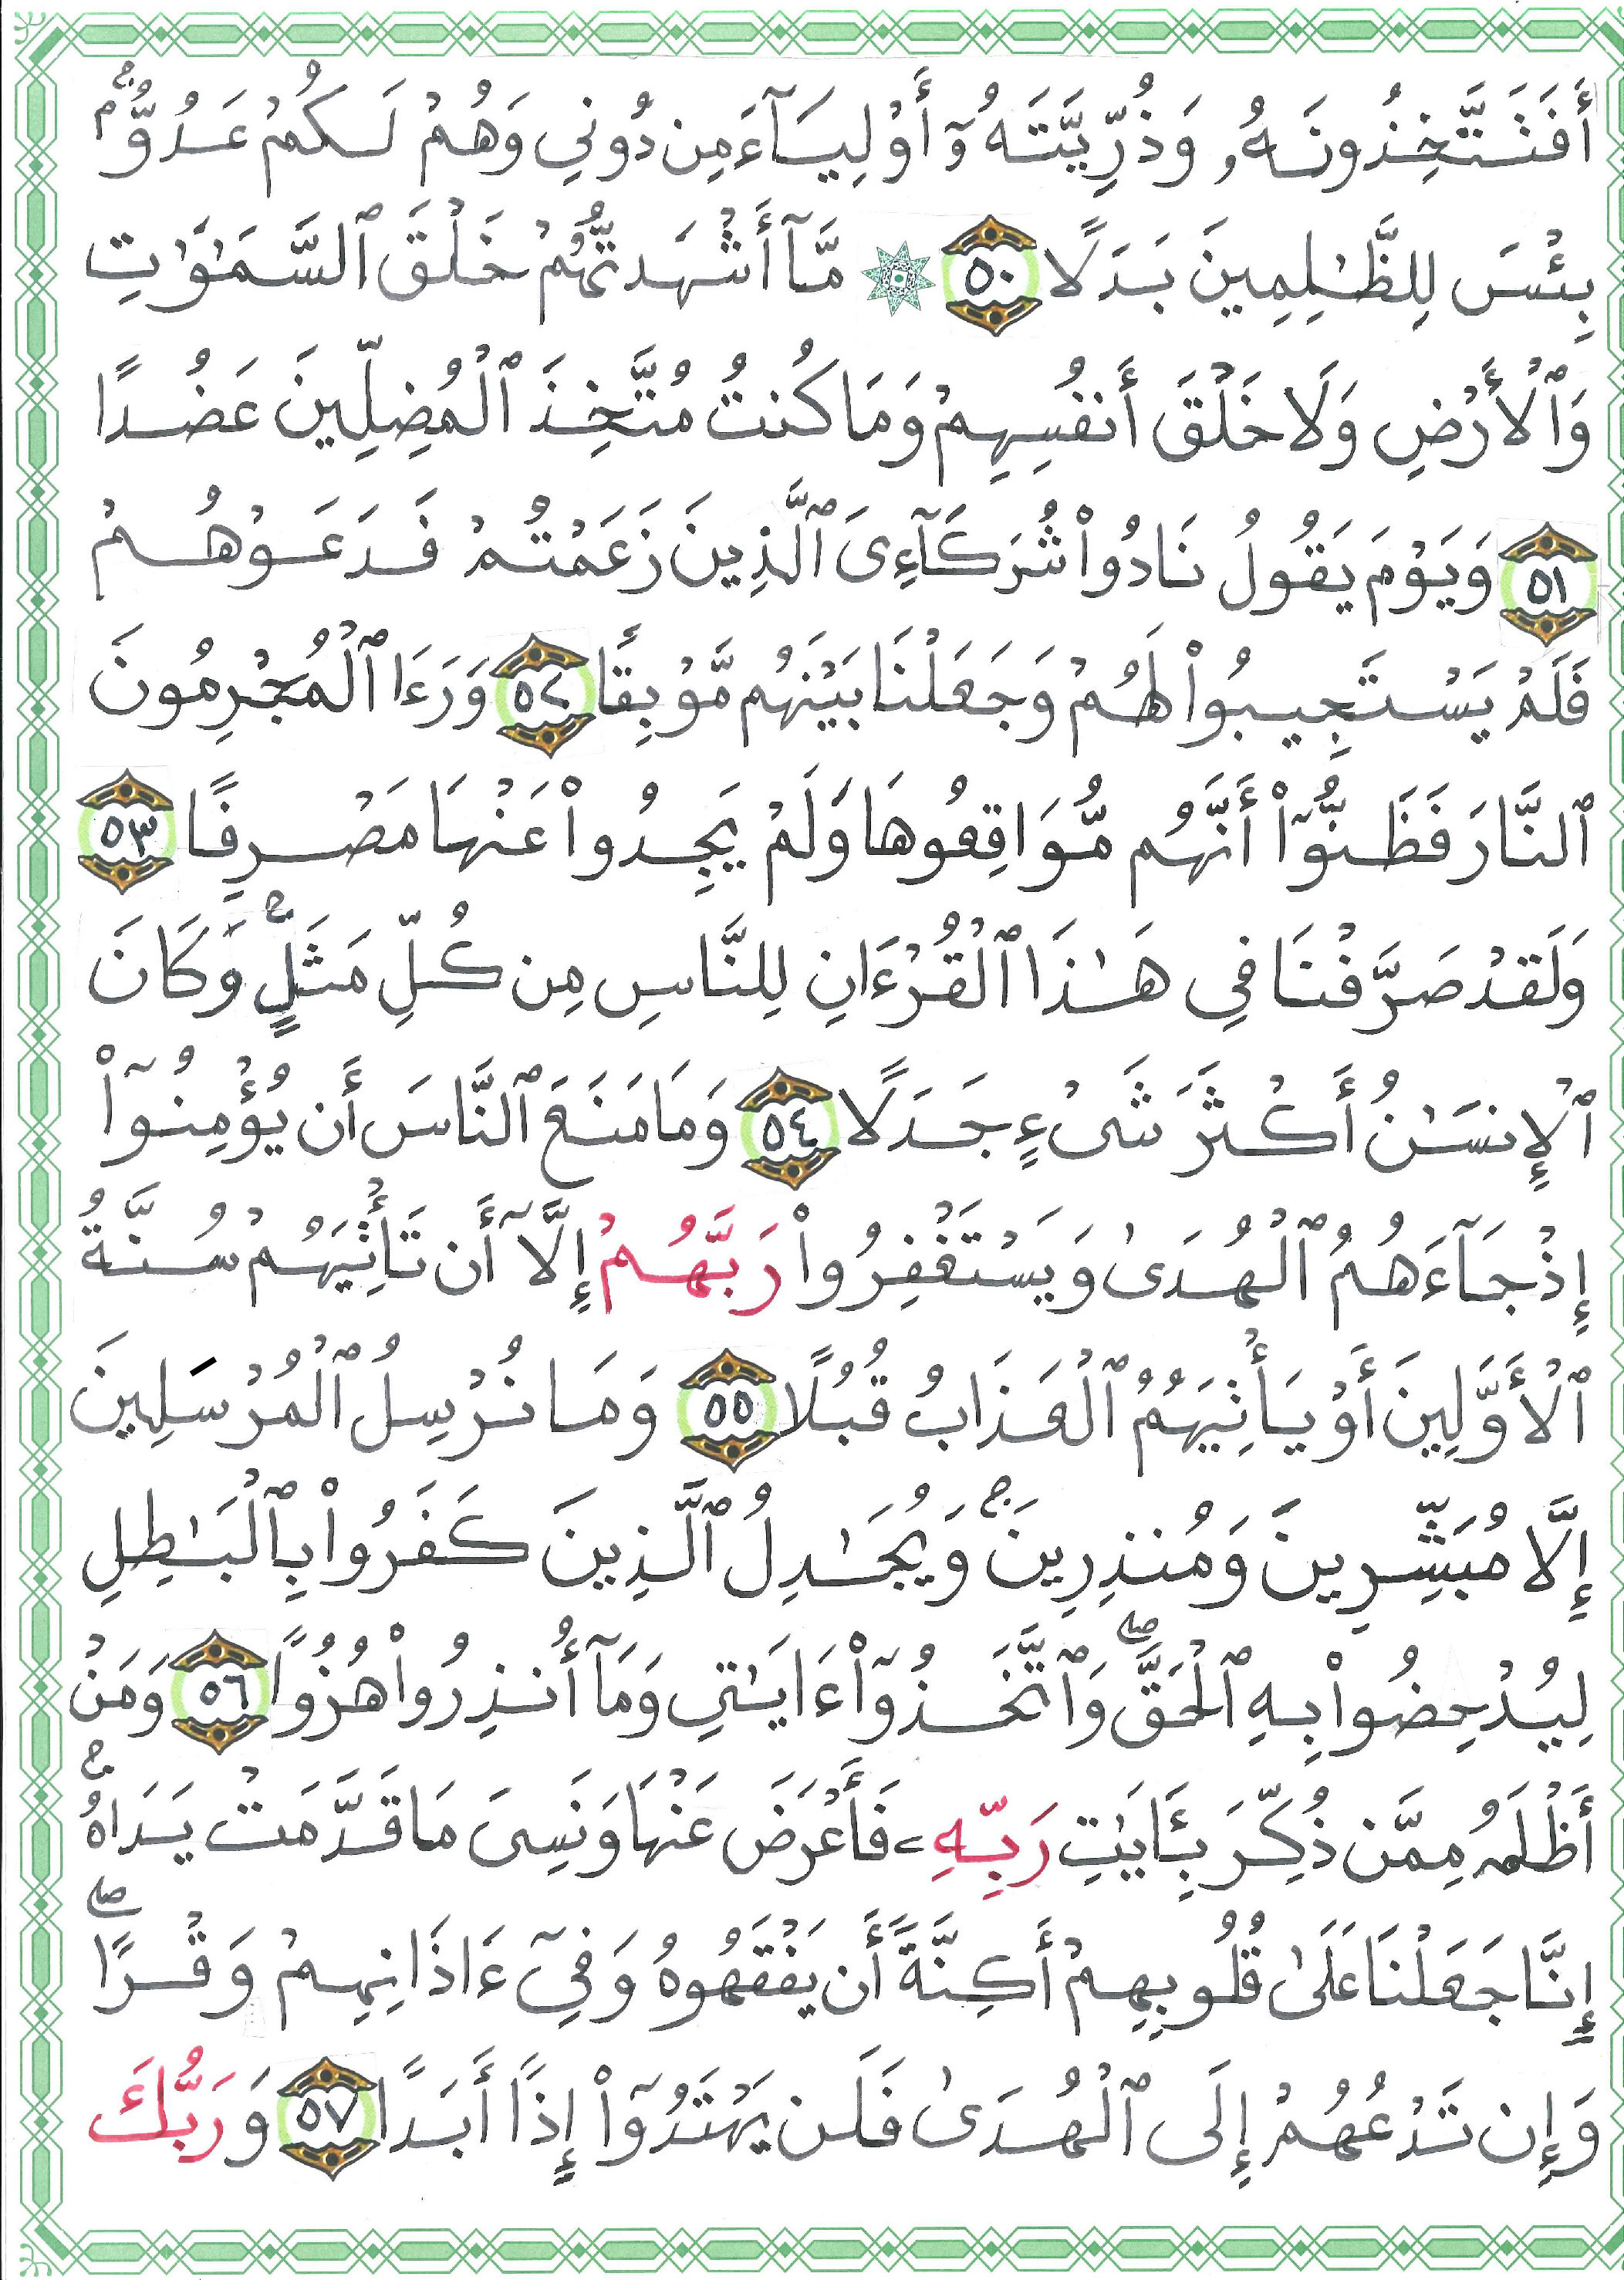 أَفَتَتَّخِذُونَهُۥ وَذُرِّيَّتَهُۥٓ أَوْلِيَآءَ مِن دُونِي وَهُمْ لَكُمْ عَدُوُّۢ ۚ
بِئْسَ لِلظَّٰلِمِينَ بَدَلًا ٥٠ ۞ مَّآ أَشْهَدتُّهُمْ خَلْقَ ٱلسَّمَٰوَٰتِ
وَٱلْأَرْضِ وَلَا خَلْقَ أَنفُسِهِمْ وَمَا كُنتُ مُتَّخِذَ ٱلْمُضِلِّينَ عَضُدًا
٥١ وَيَوْمَ يَقُولُ نَادُوا۟ شُرَكَآءِىَ ٱلَّذِينَ زَعَمْتُمْ فَدَعَوْهُمْ
فَلَمْ يَسْتَجِيبُوا۟ لَهُمْ وَجَعَلْنَا بَيْنَهُم مَّوْبِقًا ٥٢ وَرَءَا ٱلْمُجْرِمُونَ
ٱلنَّارَ فَظَنُّوٓا۟ أَنَّهُم مُّوَاقِعُوهَا وَلَمْ يَجِدُوا۟ عَنْهَا مَصْرِفًا ٥٣
وَلَقَدْ صَرَّفْنَا فِي هَٰذَا ٱلْقُرْءَانِ لِلنَّاسِ مِن كُلِّ مَثَلٍ ۚ وَكَانَ
ٱلْإِنسَٰنُ أَكْثَرَ شَىْءٍ جَدَلًا ٥٤ وَمَا مَنَعَ ٱلنَّاسَ أَن يُؤْمِنُوٓا۟
إِذْ جَآءَهُمُ ٱلْهُدَىٰ وَيَسْتَغْفِرُوا۟ رَبَّهُمْ إِلَّآ أَن تَأْتِيَهُمْ سُنَّةُ
ٱلْأَوَّلِينَ أَوْ يَأْتِيَهُمُ ٱلْعَذَابُ قُبُلًا ٥٥ وَمَا نُرْسِلُ ٱلْمُرْسَلِينَ
إِلَّا مُبَشِّرِينَ وَمُنذِرِينَ ۚ وَيُجَٰدِلُ ٱلَّذِينَ كَفَرُوا۟ بِٱلْبَٰطِلِ
لِيُدْحِضُوا۟ بِهِ ٱلْحَقَّ ۖ وَٱتَّخَذُوٓا۟ ءَايَٰتِي وَمَآ أُنذِرُوا۟ هُزُوًا ٥٦ وَمَنْ
أَظْلَمُ مِمَّن ذُكِّرَ بِـَٔايَٰتِ رَبِّهِۦ فَأَعْرَضَ عَنْهَا وَنَسِىَ مَا قَدَّمَتْ يَدَاهُ ۚ
إِنَّا جَعَلْنَا عَلَىٰ قُلُوبِهِمْ أَكِنَّةً أَن يَفْقَهُوهُ وَفِىٓ ءَاذَانِهِمْ وَقْرًا ۖ
وَإِن تَدْعُهُمْ إِلَى ٱلْهُدَىٰ فَلَن يَهْتَدُوٓا۟ إِذًا أَبَدًا ٥٧ وَرَبُّكَ